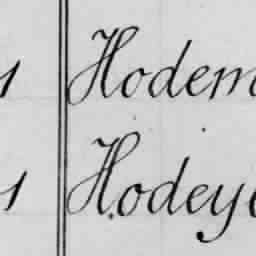 1 Hodem
1 Hodey